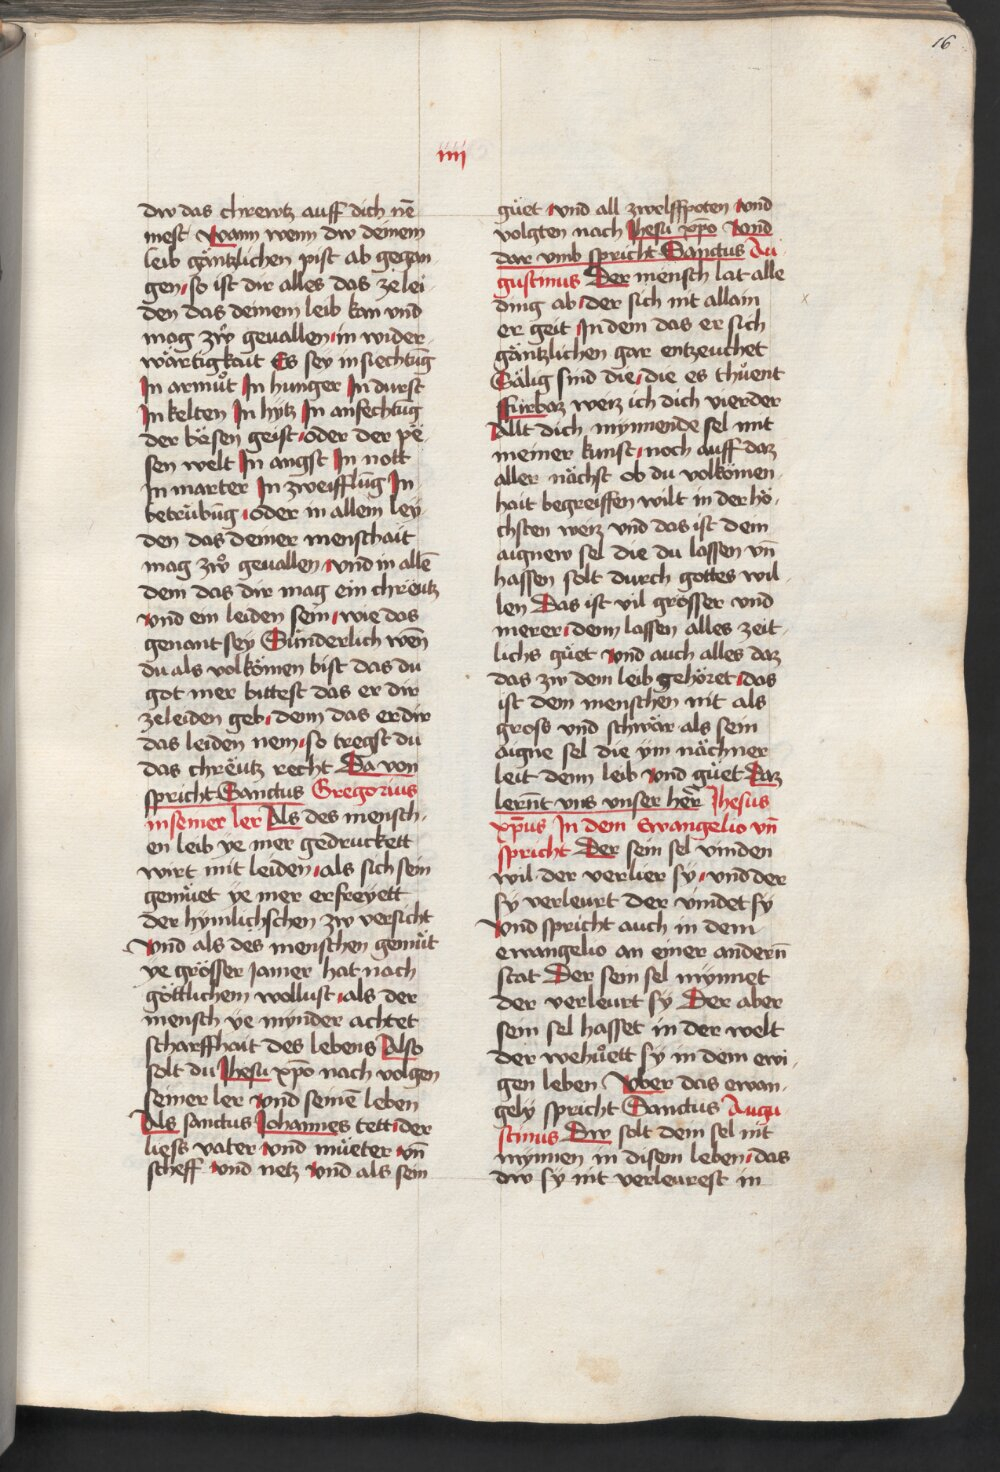 16
iiii
dw das chrewtz auff dich nē
mest Wann wenn dw deinem
leib gäntzlichen pist ab gegan
gen so ist dir alles das ze lei
den das deinem leib kan vnd
mag zẘ geuallen in wider
wärtigkait Es sey in siechtūg
In armůt In hunger In durst
In kelten In hytz In anfechtūg
der bösen geist oder der pö
sen welt In angst In nott
In marter In zweifflūg In
betrübūg oder in allem ley
den das deiner menschait
mag zẘ geuallen vnd in allē
dem das dir mag ein chrëutz
vnd ein leiden sein wie das
genant sey Sünderlich wēn
du als volkömen bist das du
got mer bittest das er dir
ze leiden geb denn das er dir
das leiden nem so tregst du
das chrëutz recht Da von
spricht Sanctus Gregorius
in seiner ler Als des mensch
en leib ye mer gedruckett
wirt mit leiden als sich sein
gemüet ye mer erfreyett
der hymlichschen zw versicht
Vnd als des menschen gemüt
ye grösser Jamer hat nach
göttlichem wollust als der
mensch ye mynder achtet
scharffhait des lebens Also
solt du Jhesu xp̄o nach volgen
seiner ler vnd seinē leben
Als sanctus Johannes tett der
liess vater vnd müeter vn̄
scheff vnd netz vnd als sein
güet vnd all zwelffpoten vnd
volgten nach Jhesu xp̄o Vnd
dar vmb spricht Sanctus Au
gustinus Der mensch lat alle
ding ab der sich nit allain
er geit In dem das er sich
gäntzlichen gar entzeuchet
Sälig sind die die es thüent
Fürbaz weiz ich dich vierder
Allt dich mynnende sel mit
meiner kunst noch auff daz
aller nächst ob du volkömen
hait begreiffen wilt in der hö
chsten weiz vnd das ist dein
aignew sel die du lassen vn̄
hassen solt durch gottes wil
len Das ist vil grösser vnd
merer denn lassen alles zeit
lichs güet vnd auch alles daz
das zw dem leib gehöret das
ist dem menschen nit als
gross vnd schwär als sein
aigne sel die ym nächner
leit denn leib vnd güet Daz
lernt vns vnser her̄ Jhesus
xp̄us In dem Ewangelio vn̄
spricht Der sein sel vinden
wil der verlier sy vnd der
sy verleurt der vindet sy
Vnd spricht auch in dem
ewangelio an einer andern̄
stat Der sein sel mynnet
der verleurt sy Der aber
sein sel hasset in der welt
der wehüett sy in dem ewi
gen leben Vber das ewan
gely spricht Sanctus Augu
stinus Dw solt dein sel nit
mynnen in disem leben das
dw sy nit verleurest in